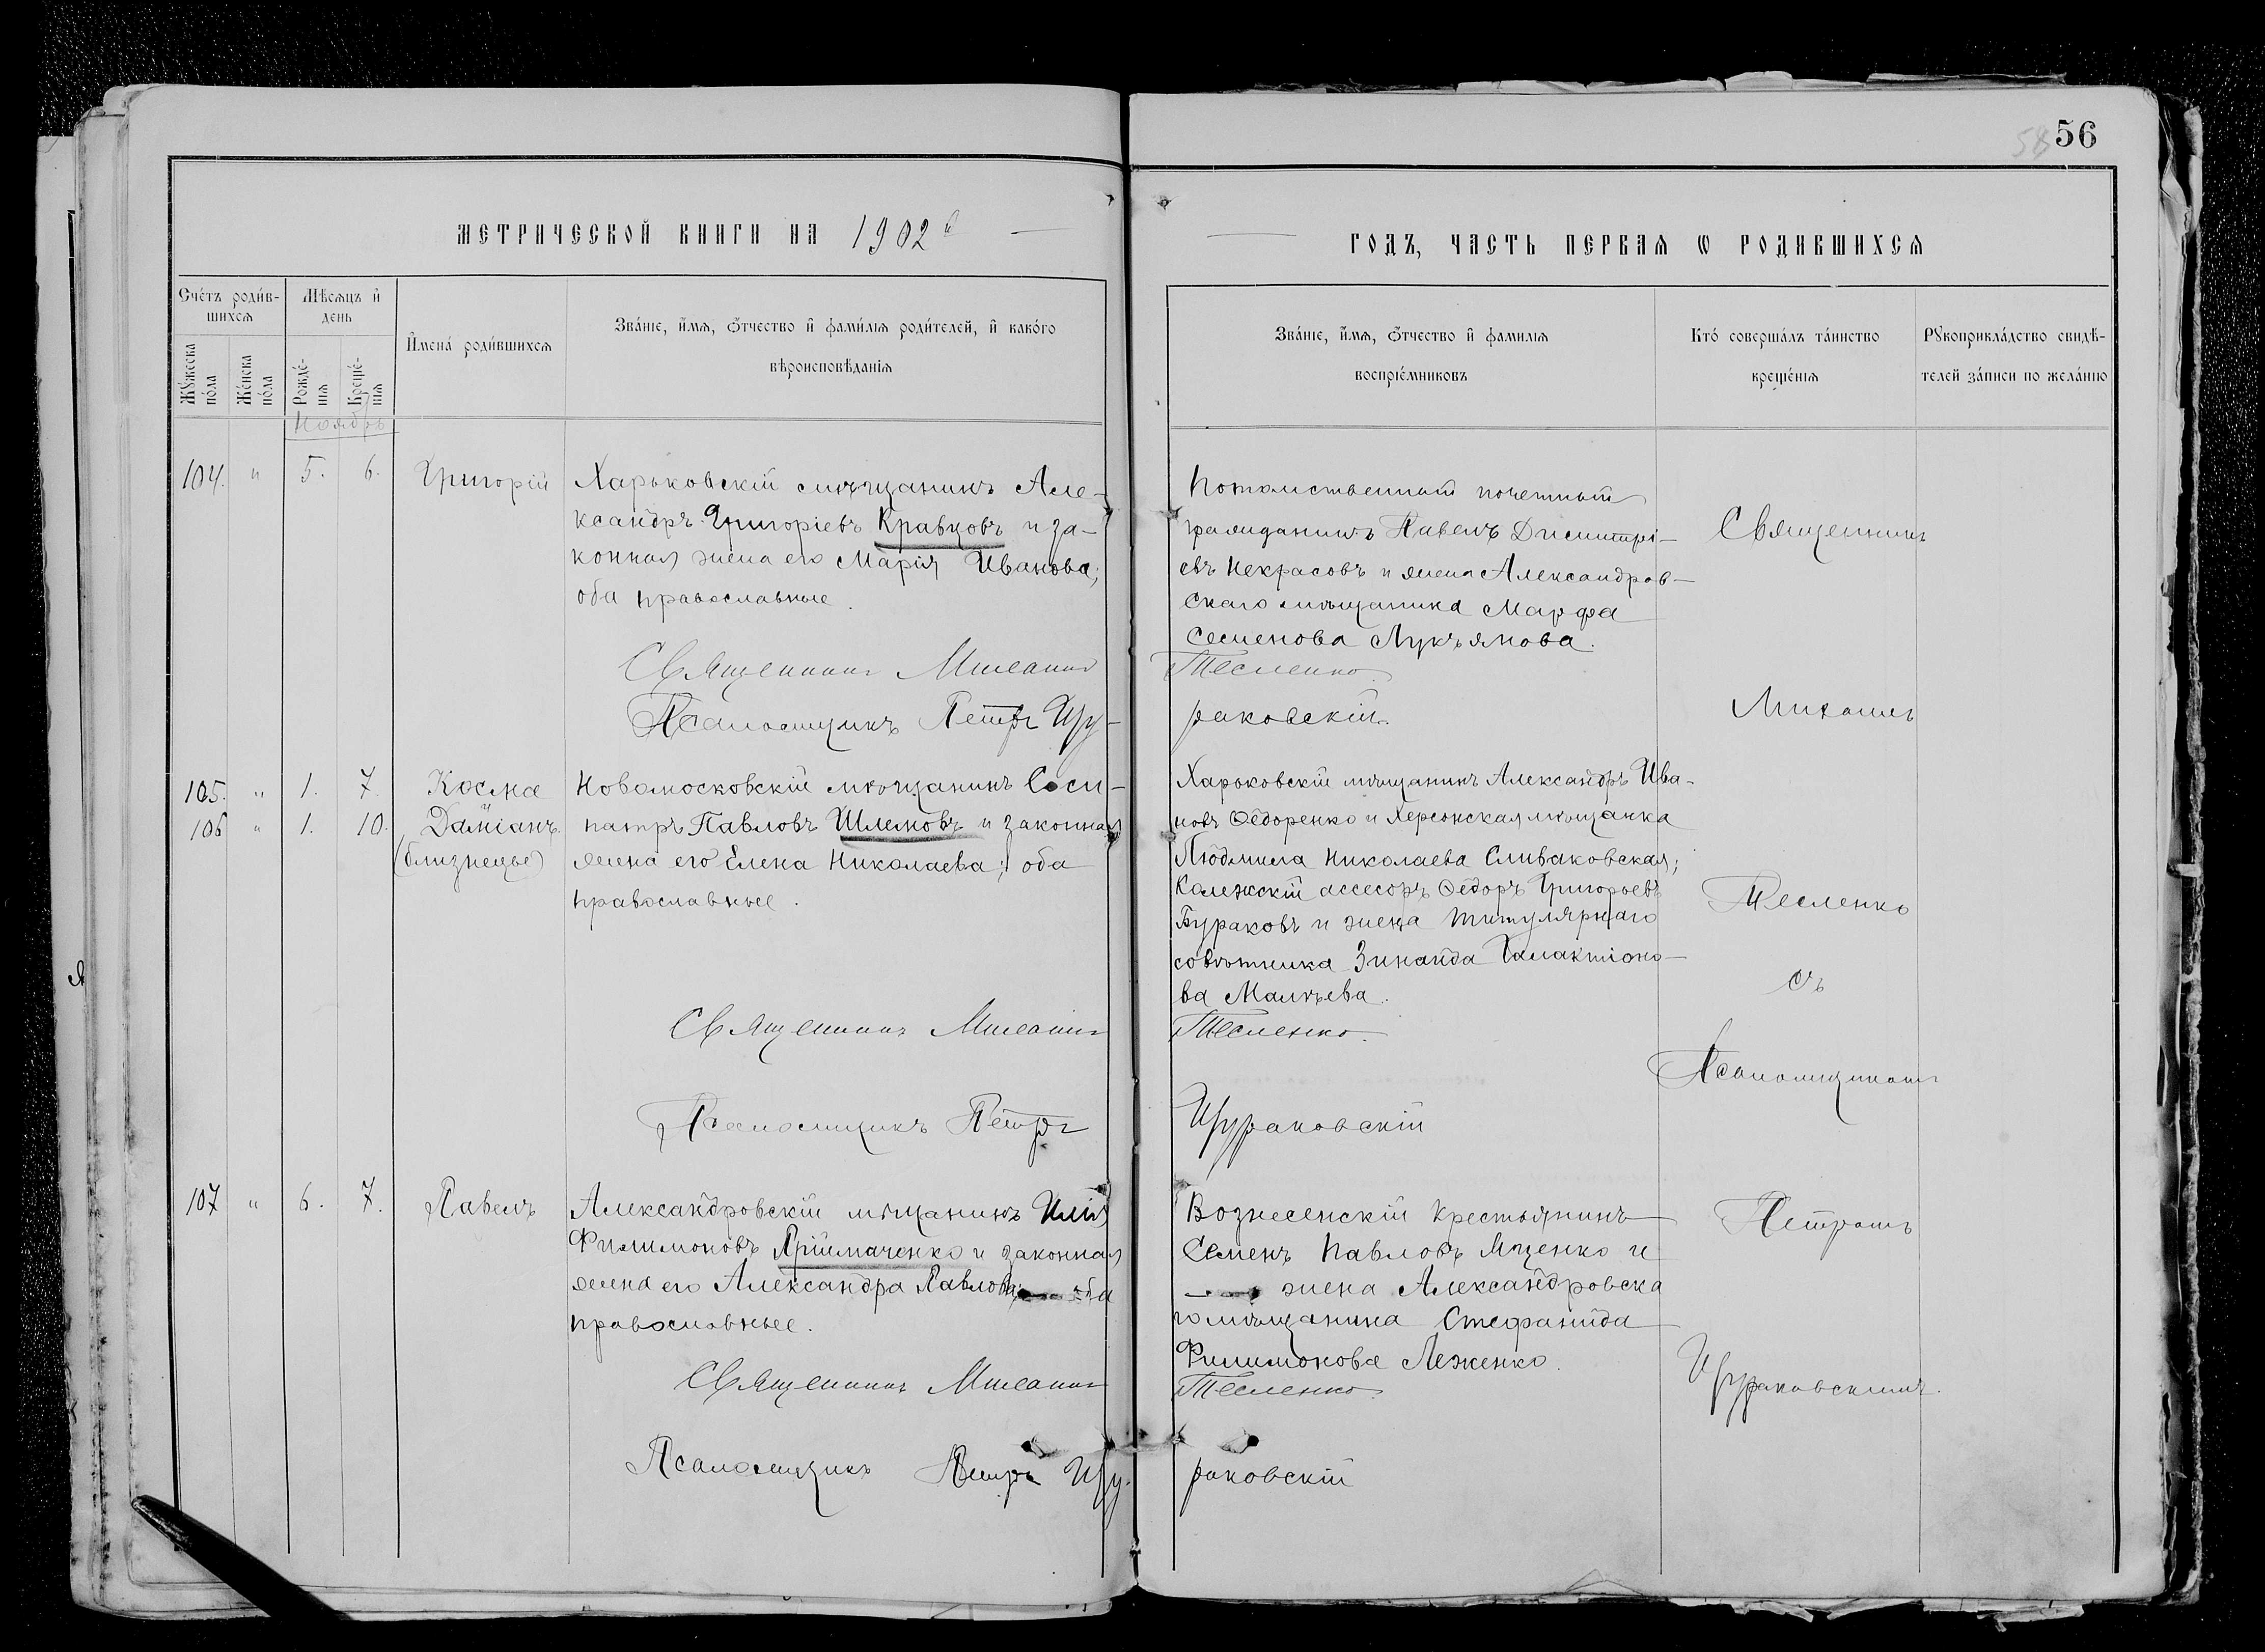 56
58
МЕТРИЧЕСКОЙ КНИГИ НА 1902й
ГОДЪ, ЧАСТЬ ПЕРВАЯ Ѡ РОДИВШИХСЯ
Счетъ родив-
шихся
Мѣсяцъ и
день
Мужеска
пола
Женска
пола
Рожде-
нія
Креще-
нія
Имена родившихся
Званіе, имя, отчество и фамилія родителей, и какого
вѣроисповѣданія
Званіе, имя, отчество и фамилія
воспріемниковъ
Кто совершалъ таинство
крещенія
Рукоприкладство свидѣ-
телей записи по желанію
Ноябрь
104. " 5. 6. Григорій
Харьковскій мѣщанинъ Але-
ксандръ Григоріевъ Кравцовъ и за-
конная жена его Марія Иванова;
оба православные.
Священникъ Михаилъ
Псаломщикъ Петръ Щу-
Потомственный почетный
гражданинъ Павелъ Димитрі-
евъ Некрасовъ и жена Александров-
скаго мѣщанина Марфа
Семенова Лукъянова.
Тесленко.
раковскій.
105. " 1. 7. Косма
106 " 1. 10. Даміанъ.
(близнецы)
Новомосковскій мѣщанинъ Соси-
патръ Павловъ Шлемовъ и законная
жена его Елена Николаева; оба
православные.
Священникъ Михаилъ
Псаломщикъ Петръ
Харьковскій мѣщанинъ Александръ Ива-
новъ Ѳедоренко и Херсонская мѣщанка
Людмила Николаева Сливаковская;
Колежскій ассесоръ Ѳедоръ Григорьевъ
Бураковъ и жена титулярнаго
совѣтника Зинаида Галактіоно-
ва Малѣева.
Тесленко.
Щураковскій
107 " 6. 7. Павелъ
Александровскій мѣщанинъ Илія
Филимоновъ Пріймаченко и законная
жена его Александра Павлова; оба
православные.
Священникъ Михаилъ
Псаломщикъ Петръ Щу-
Вознесенскій крестьянинъ
Семенъ Павловъ Яценко и
жена Александровска
го мѣщанина Стефанида
Филимонова Леженко.
Тесленко.
раковскій
Священникъ
Михаилъ
Тесленко
съ
Псаломщикомъ
Петромъ
Щураковскимъ.